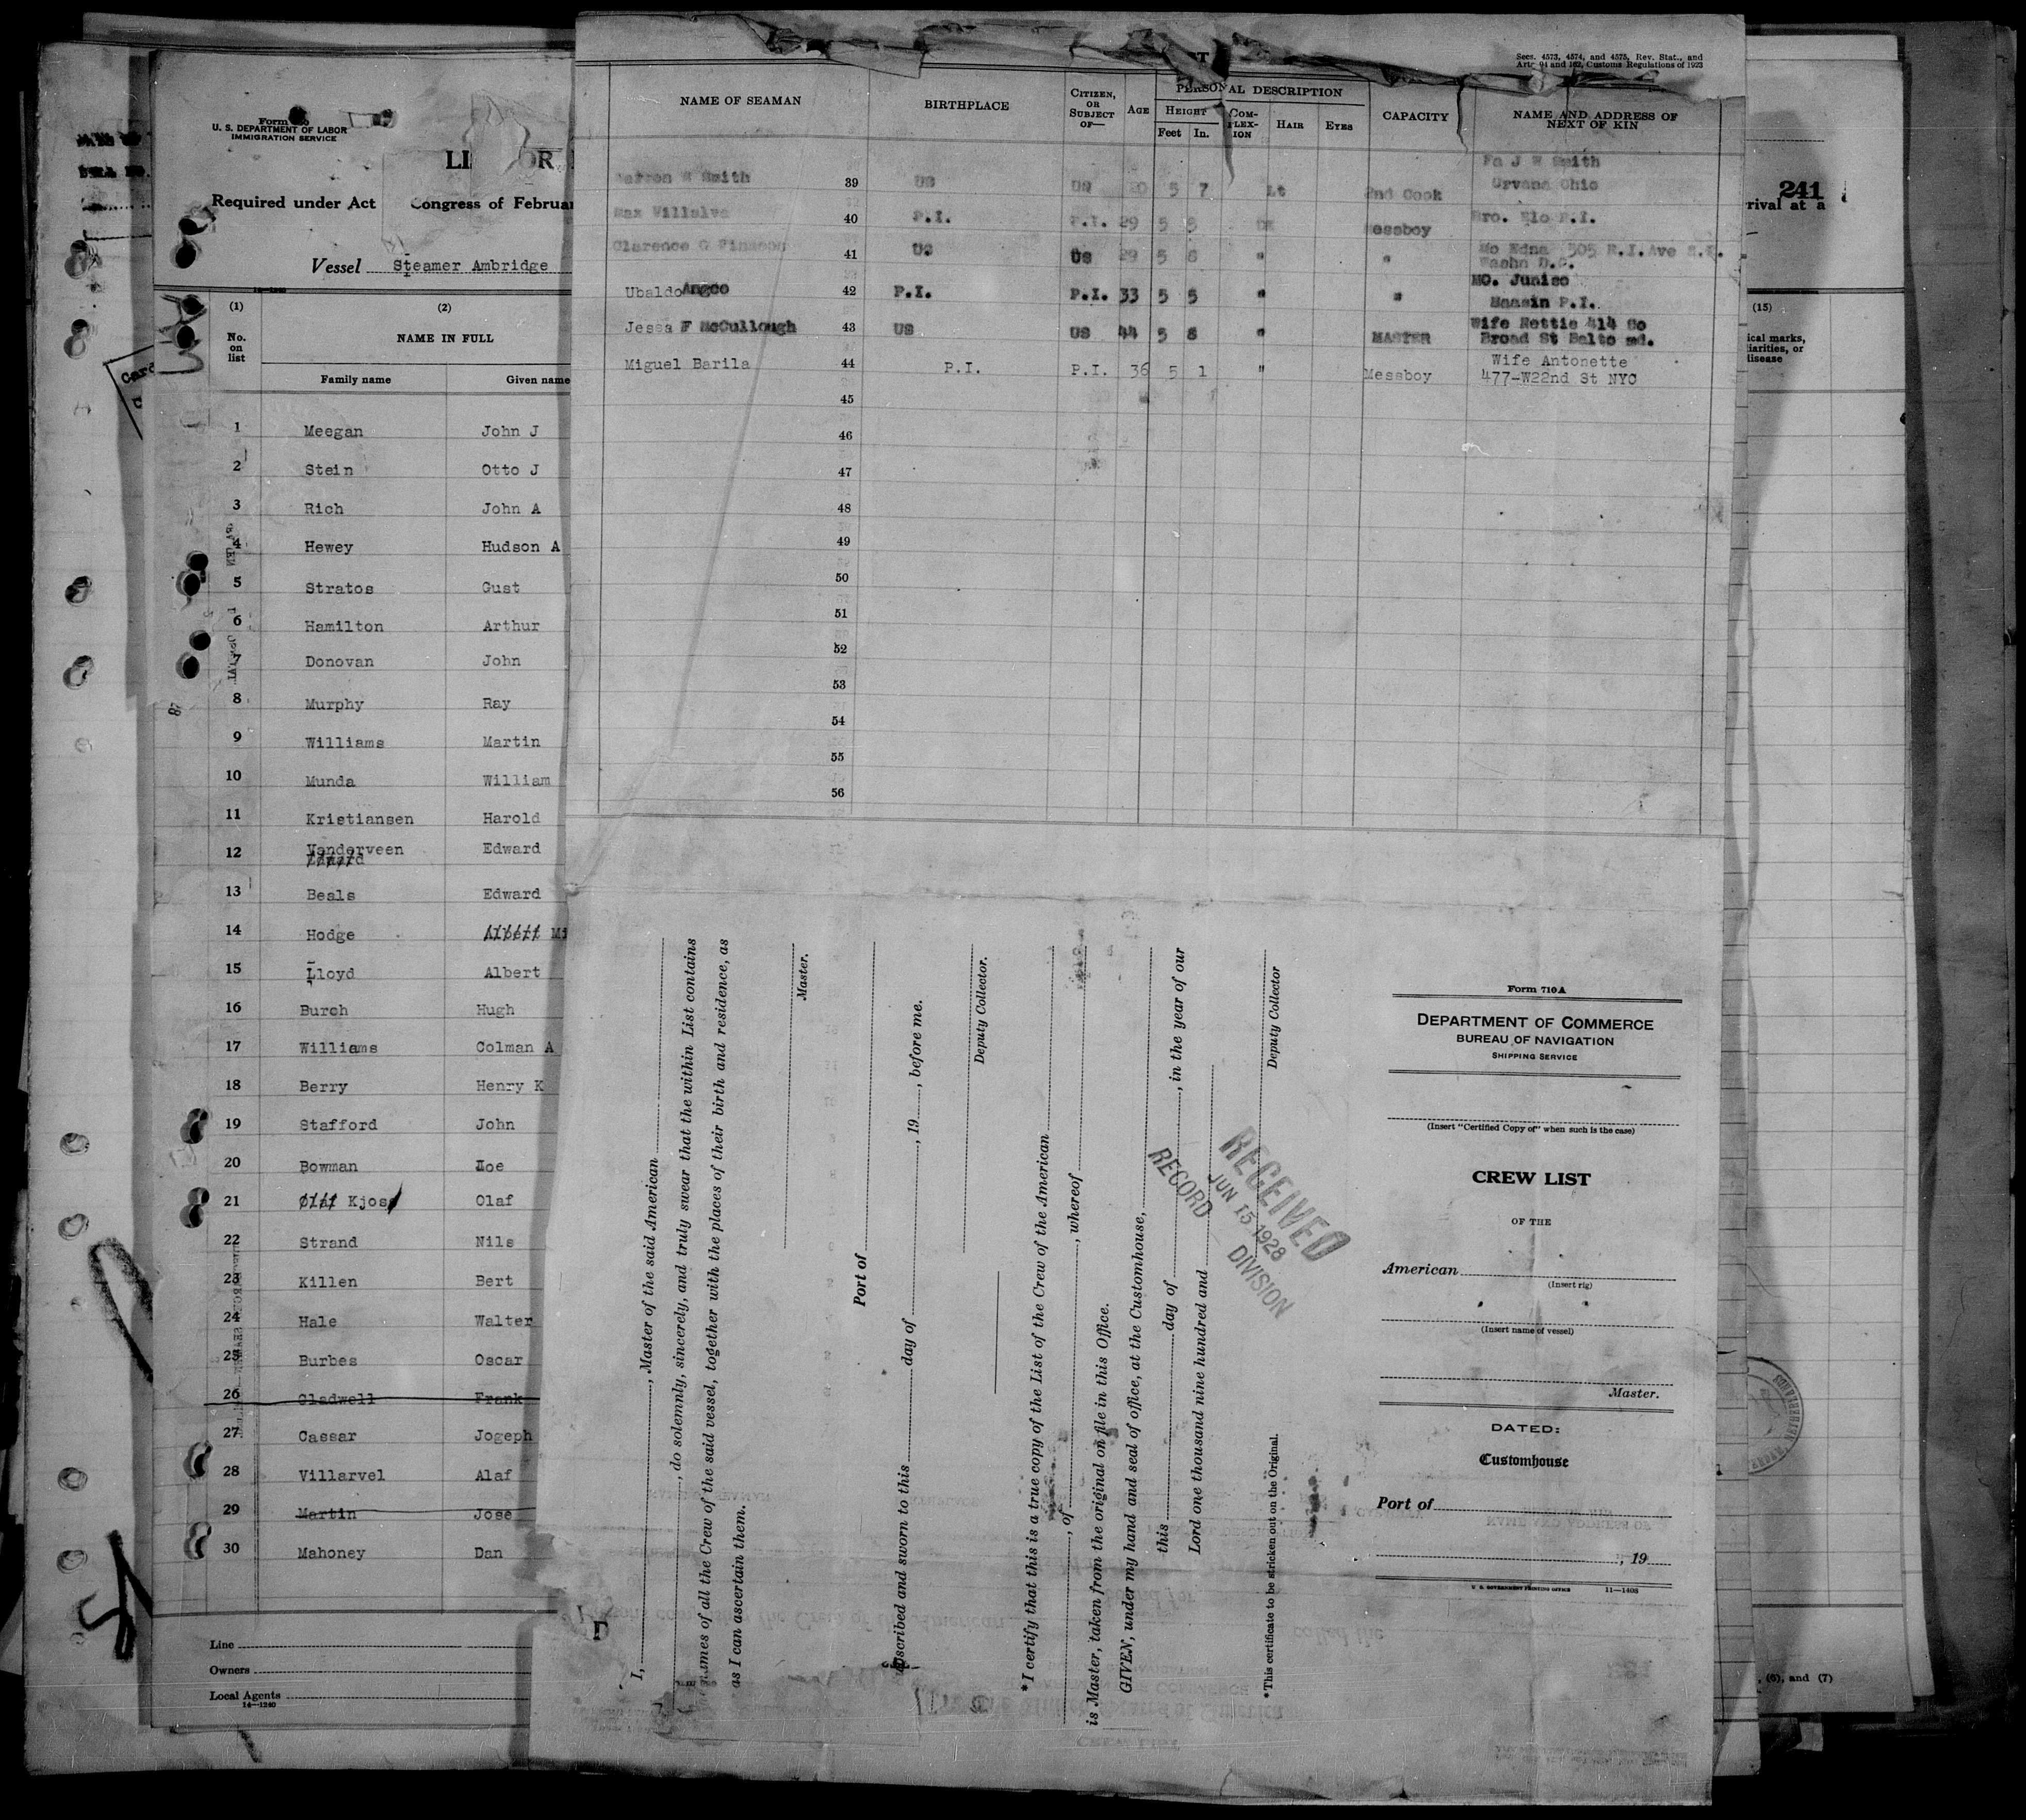 U. S. DEPARTMENT OF LABOR
IMMIGRATION SERVICE
Required under Act Congress of Februar
Vessel Steamer Ambridge
(1) (2)
No. on list
NAME IN FULL
Family name Given name
1 Meegan John J
2 Stein Otto J
3 Rich John A
4 Hewey Hudson A
5 Stratos Gust
6 Hamilton Arthur
7 Donovan John
8 Murphy Ray
9 Williams Martin
10 Munda William
11 Kristiansen Harold
12 Vanderveen Edward
13 Beals Edward
14 Hodge Albert Mi
15 Lloyd Albert
16 Burch Hugh
17 Williams Colman A
18 Berry Henry K
19 Stafford John
20 Bowman
21 Olaf Kjoss Olaf
22 Strand Nils
23 Killen Bert
24 Hale Walter
25 Burbes Oscar
26 Gladwell Frank
27 Cassar Jogeph
28 Villarvel Alaf
29 Martin Jose
30 Mahoney Dan
Line
Owners
Local Agents
14—1240
Secs. 4573, 4574, and 4575, Rev. Stat., and
Arts. 94 and 162, Customs Regulations of 1923
NAME OF SEAMAN BIRTHPLACE CITIZEN, OR SUBJECT OF— AGE PERSONAL DESCRIPTION CAPACITY NAME AND ADDRESS OF NEXT OF KIN
HEIGHT COMPLEXION HAIR EYES
Feet In.
Fa J W Smith
Smith 39 US US 5 7 Lt 2nd Cook Urvana Ohio
Max Villalva 40 P.I. P.I. 29 5 5 Messboy Bro. Elo P.I.
Clarence G 41 US US 29 5 6 " " Mo Edna 505 R.I.Ave
Washn D.C.
Ubaldo Angco 42 P.I. P.I. 33 5 5 " " MO. Juniso
Maasin P.I.
Jessa F McCullough 43 US US 44 5 8 " MASTER Wife Nettie 414 So
Broad St Balto md.
Miguel Barila 44 P.I. P.I. 36 5 1 " Messboy Wife Antonette
477-W22nd St NYC
45
46
47
48
49
50
51
52
53
54
55
56
I, , Master of the said American
, do solemnly, sincerely, and truly swear that the within List contains
names of all the Crew of the said vessel, together with the places of their birth and residence, as
as I can ascertain them.
Master.
Port of
Subscribed and sworn to this day of , 19 , before me.
Deputy Collector.
*I certify that this is a true copy of the List of the Crew of the American
, of , whereof
is Master, taken from the original on file in this Office.
GIVEN, under my hand and seal of office, at the Customhouse,
this day of , in the year of our
Lord one thousand nine hundred and
Deputy Collector
*This certificate to be stricken out on the Original.
RECEIVED
JUN 15 1928
RECORD DIVISION
Form 710A
DEPARTMENT OF COMMERCE
BUREAU OF NAVIGATION
SHIPPING SERVICE
(Insert "Certified Copy of" when such is the case)
CREW LIST
OF THE
American
(Insert rig)
(Insert name of vessel)
Master.
DATED:
Customhouse
Port of
, 19
U. S. GOVERNMENT PRINTING OFFICE 11—1408
241
rival at a
(15)
ical marks,
liarities, or
disease
, (6), and (7)